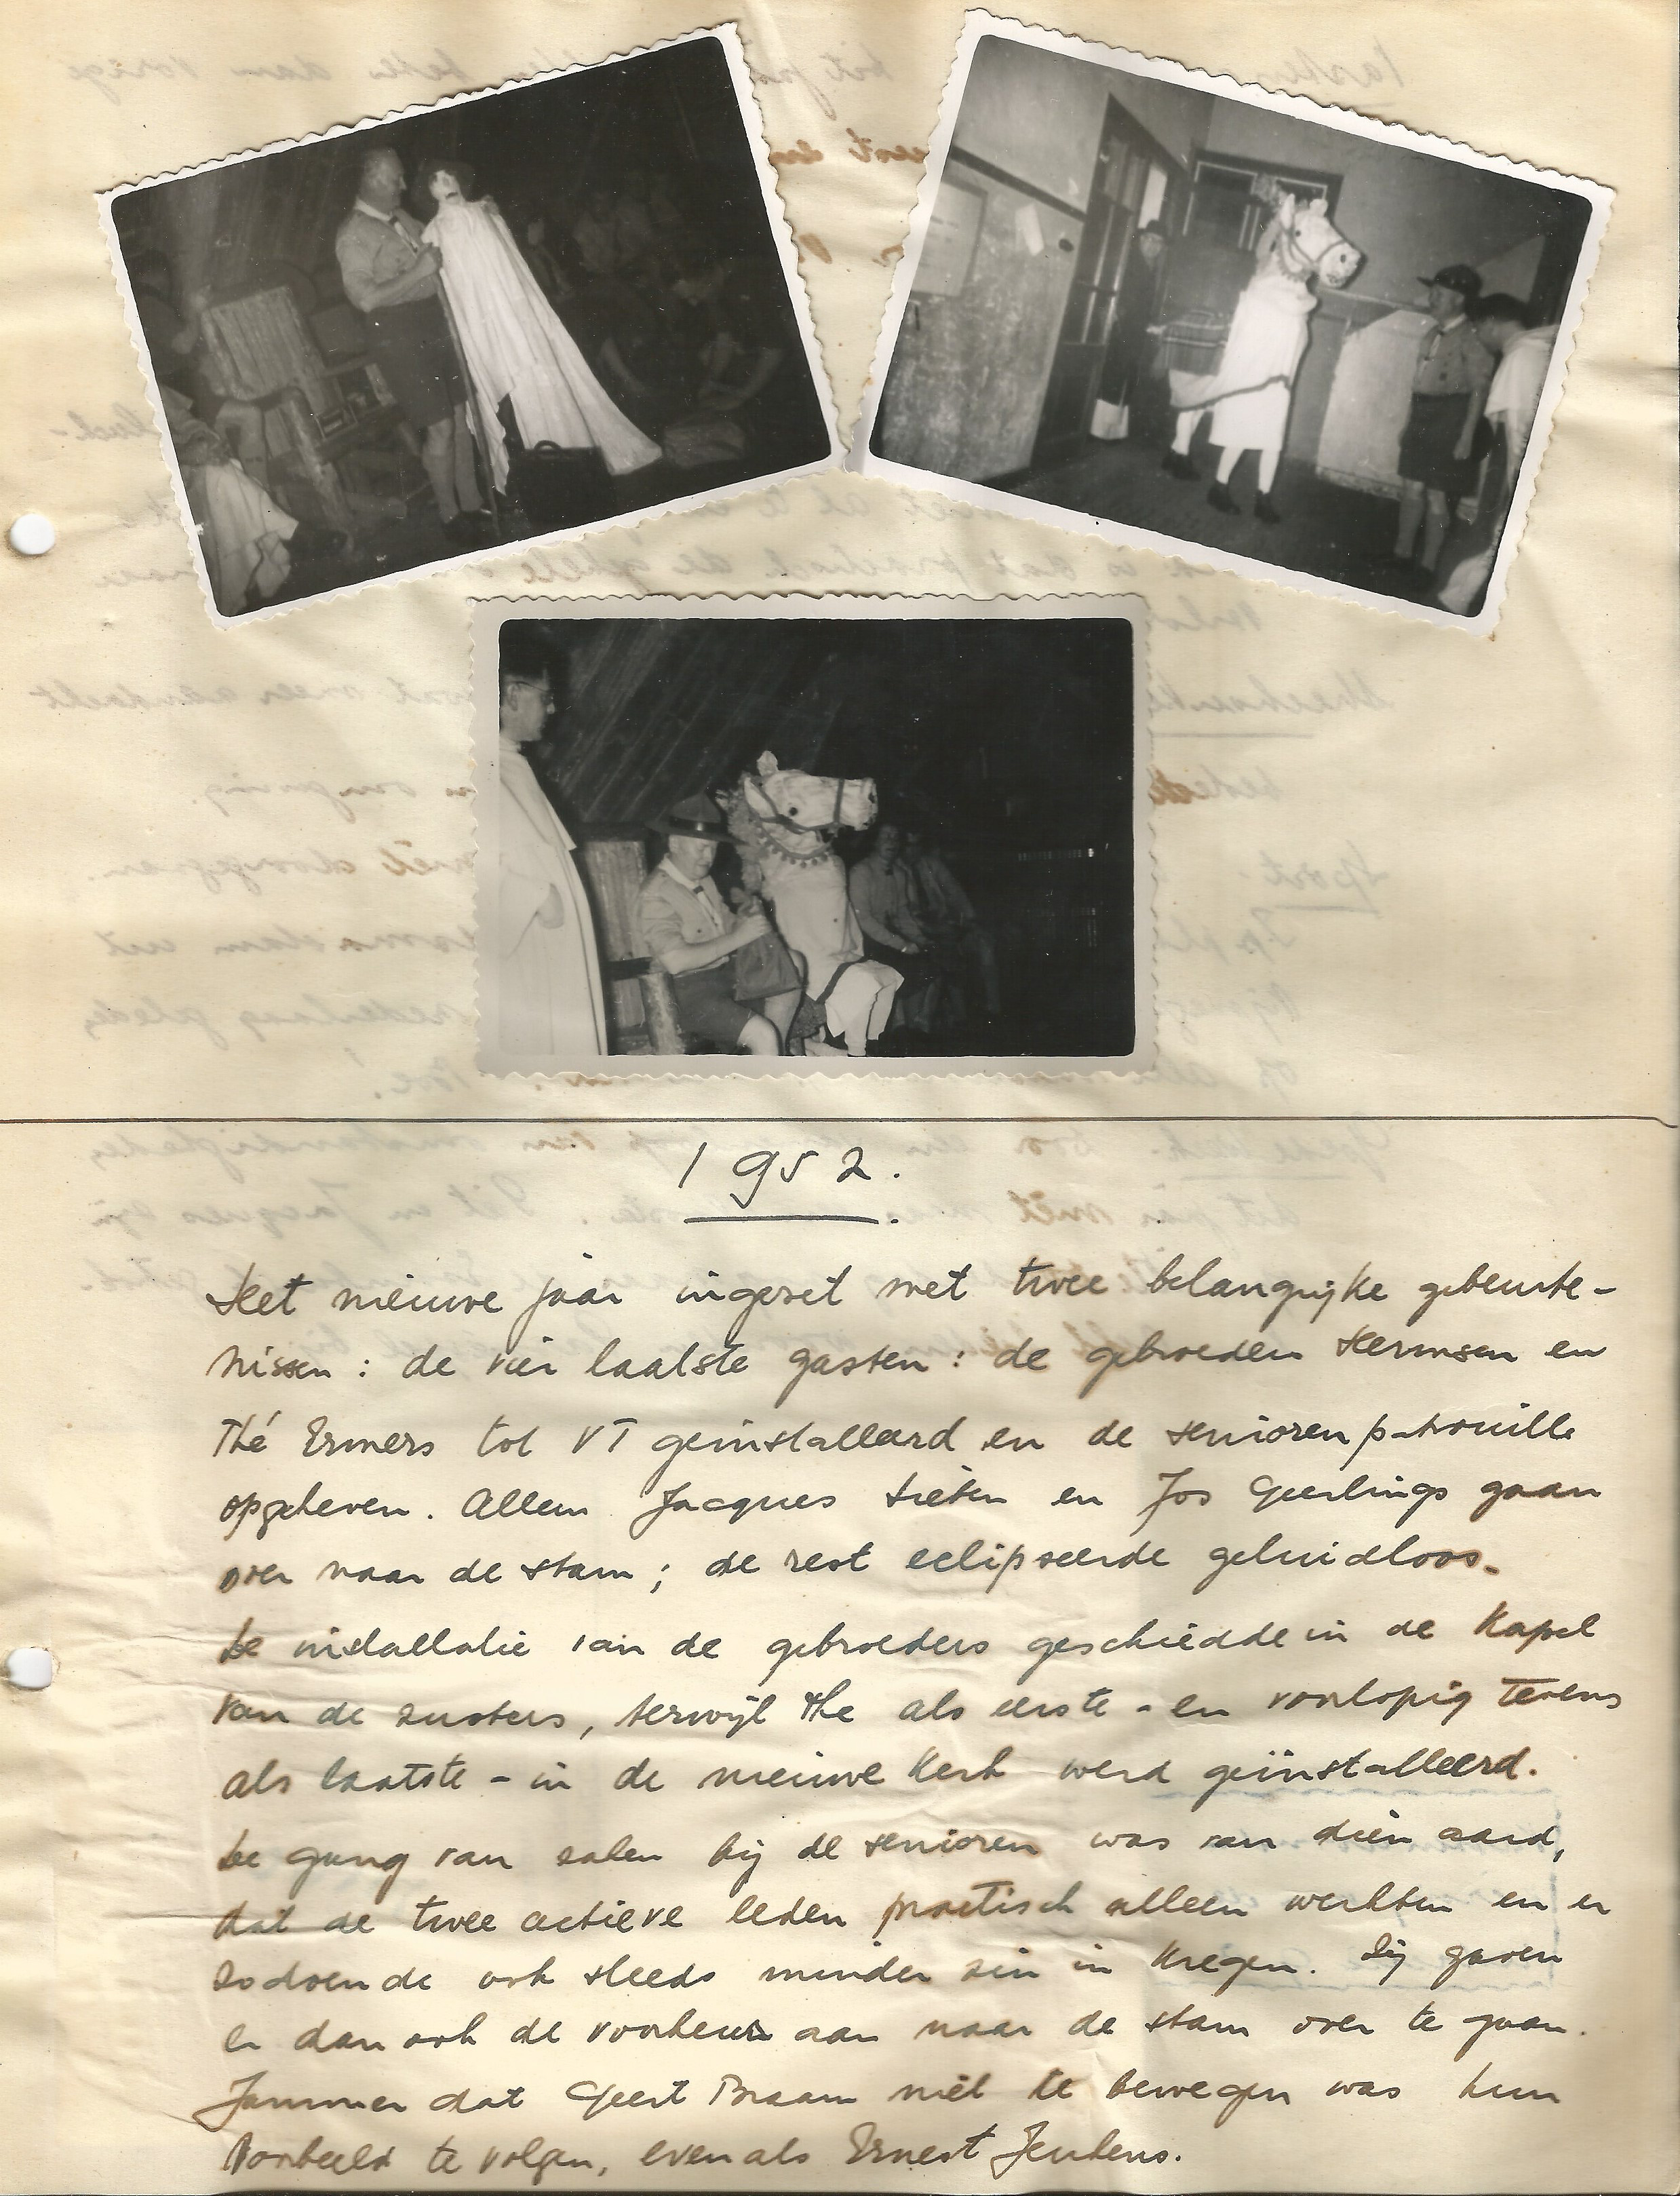 1952.
Het nieuwe jaar ingezet met twee belangrijke gebeurte-
nissen : de vier laatste gasten : de gebroeders Hermsen en
Thé Ermers tot VT geinstalleerd en de seniorenpatrouille
opgeheven. Alleen Jacques en Jos Geerlings gaan
over naar de stam ; de rest eclipseerde geluidloos.
De installatie van de gebroeders geschiedde in de Kapel
van de zusters, terwijl Thé als eerste - en voorlopig tevens
als laatste - in de nieuwe Kerk werd geïnstalleerd.
De gang van zaken bij de senioren was van dien aard,
dat de twee actieve leden practisch alleen werkten en er
zodoende ook steeds minder zin in kregen. Zij gaven
er dan ook de voorkeur aan naar de stam over te gaan.
Jammer dat Geert Braam niet te bewegen was hun
voorbeeld te volgen, evenals Ernest Jeukens.